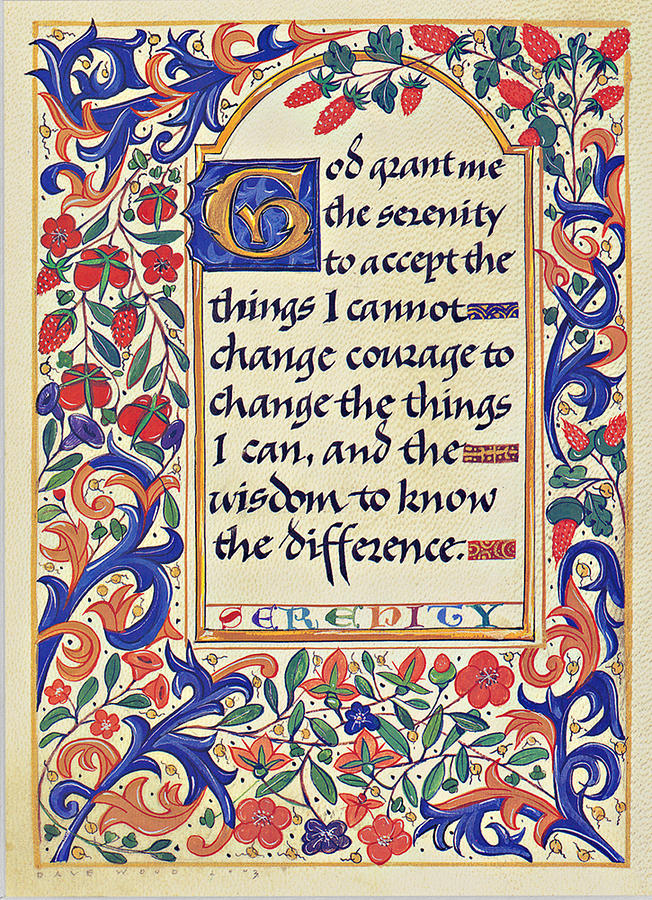 God grant me
the serenity
to accept the
things I cannot
change courage to
change the things
I can, and the
wisdom to know
the difference.
SERENITY
DAVE WOOD 2003